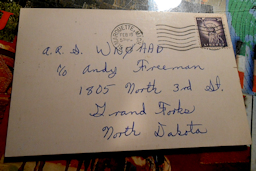 a.R.S. WNØAAD
c/o Andy Freeman
1805 North 3rd St.
Grand Forks
North Dakota